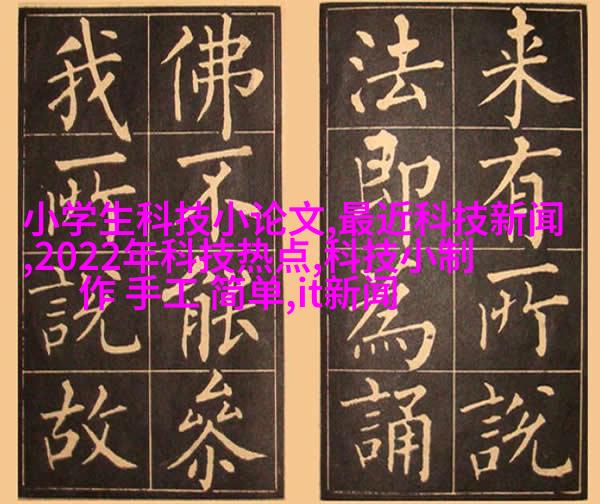 来有所說
法即為誦
佛不能叅
我所說故
小学生科技小论文,最近科技新闻
,2022年科技热点,科技小制
作 手工 简单,it新闻